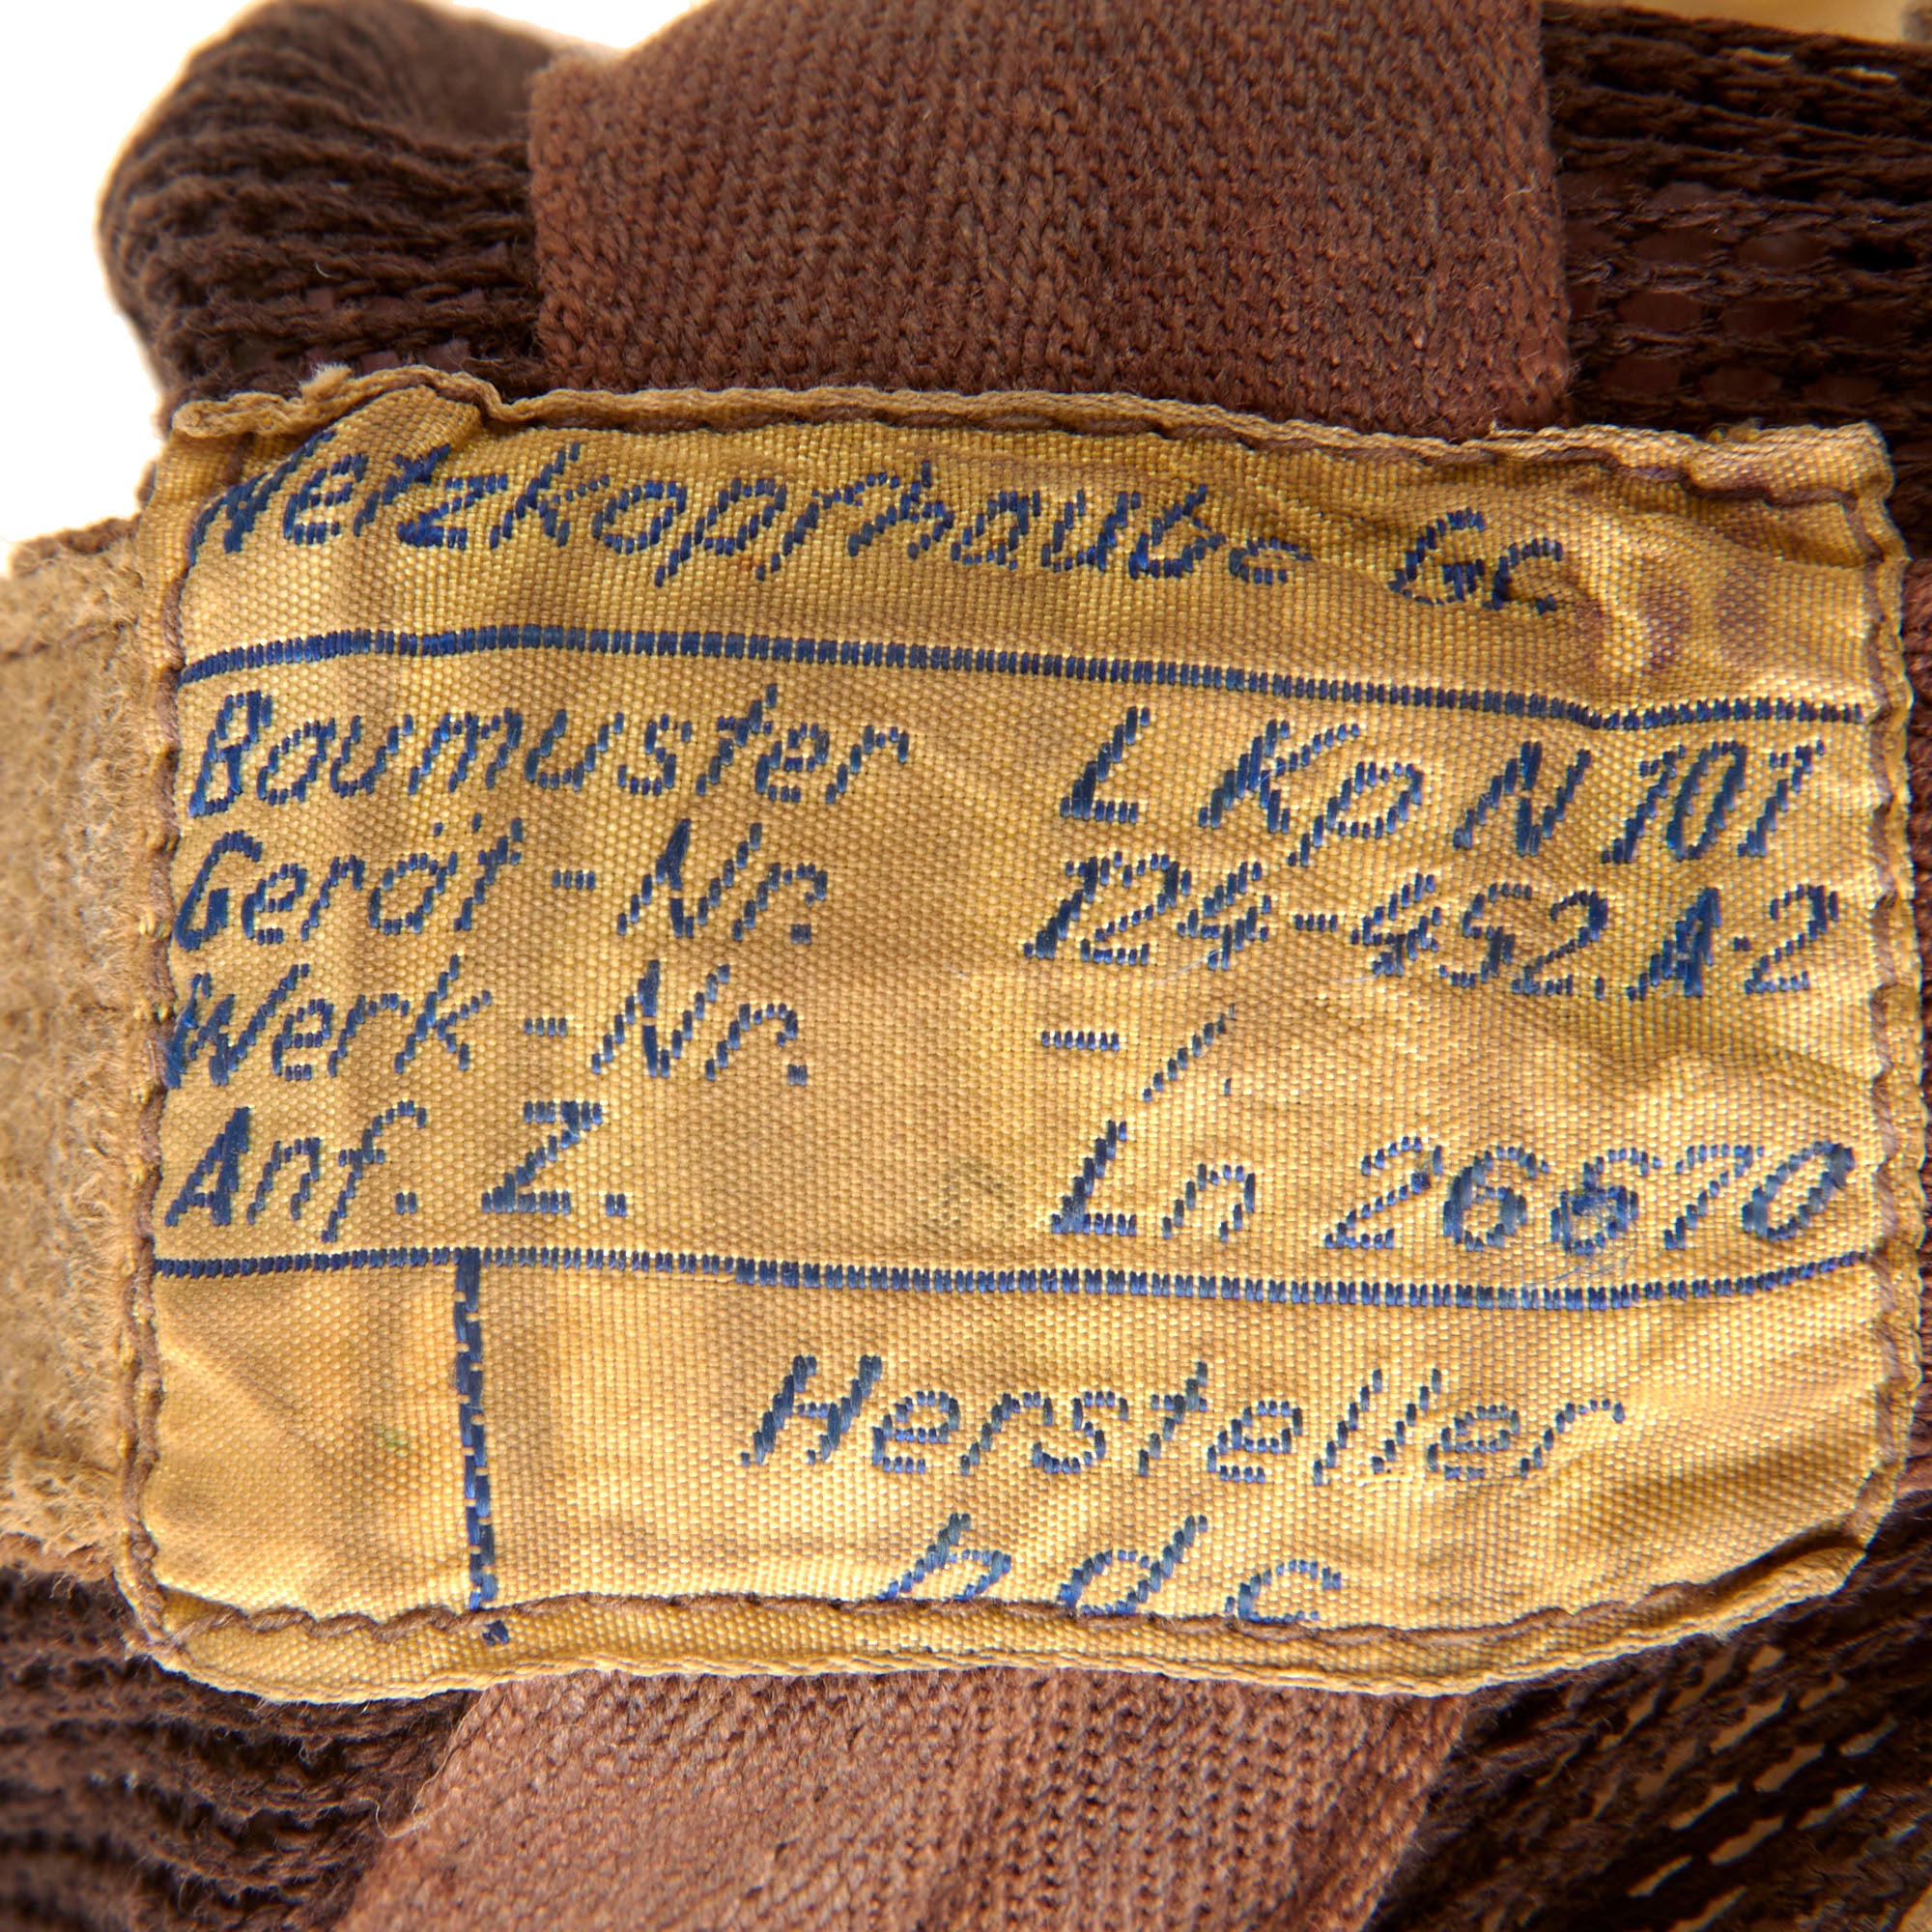 Netzkopfhaube Gr.
Baumuster L Kp N 101
Gerät-Nr. 124-452.A-2
Werk-Nr. -/.
Anf. Z. Ln 26670
Hersteller
hdc